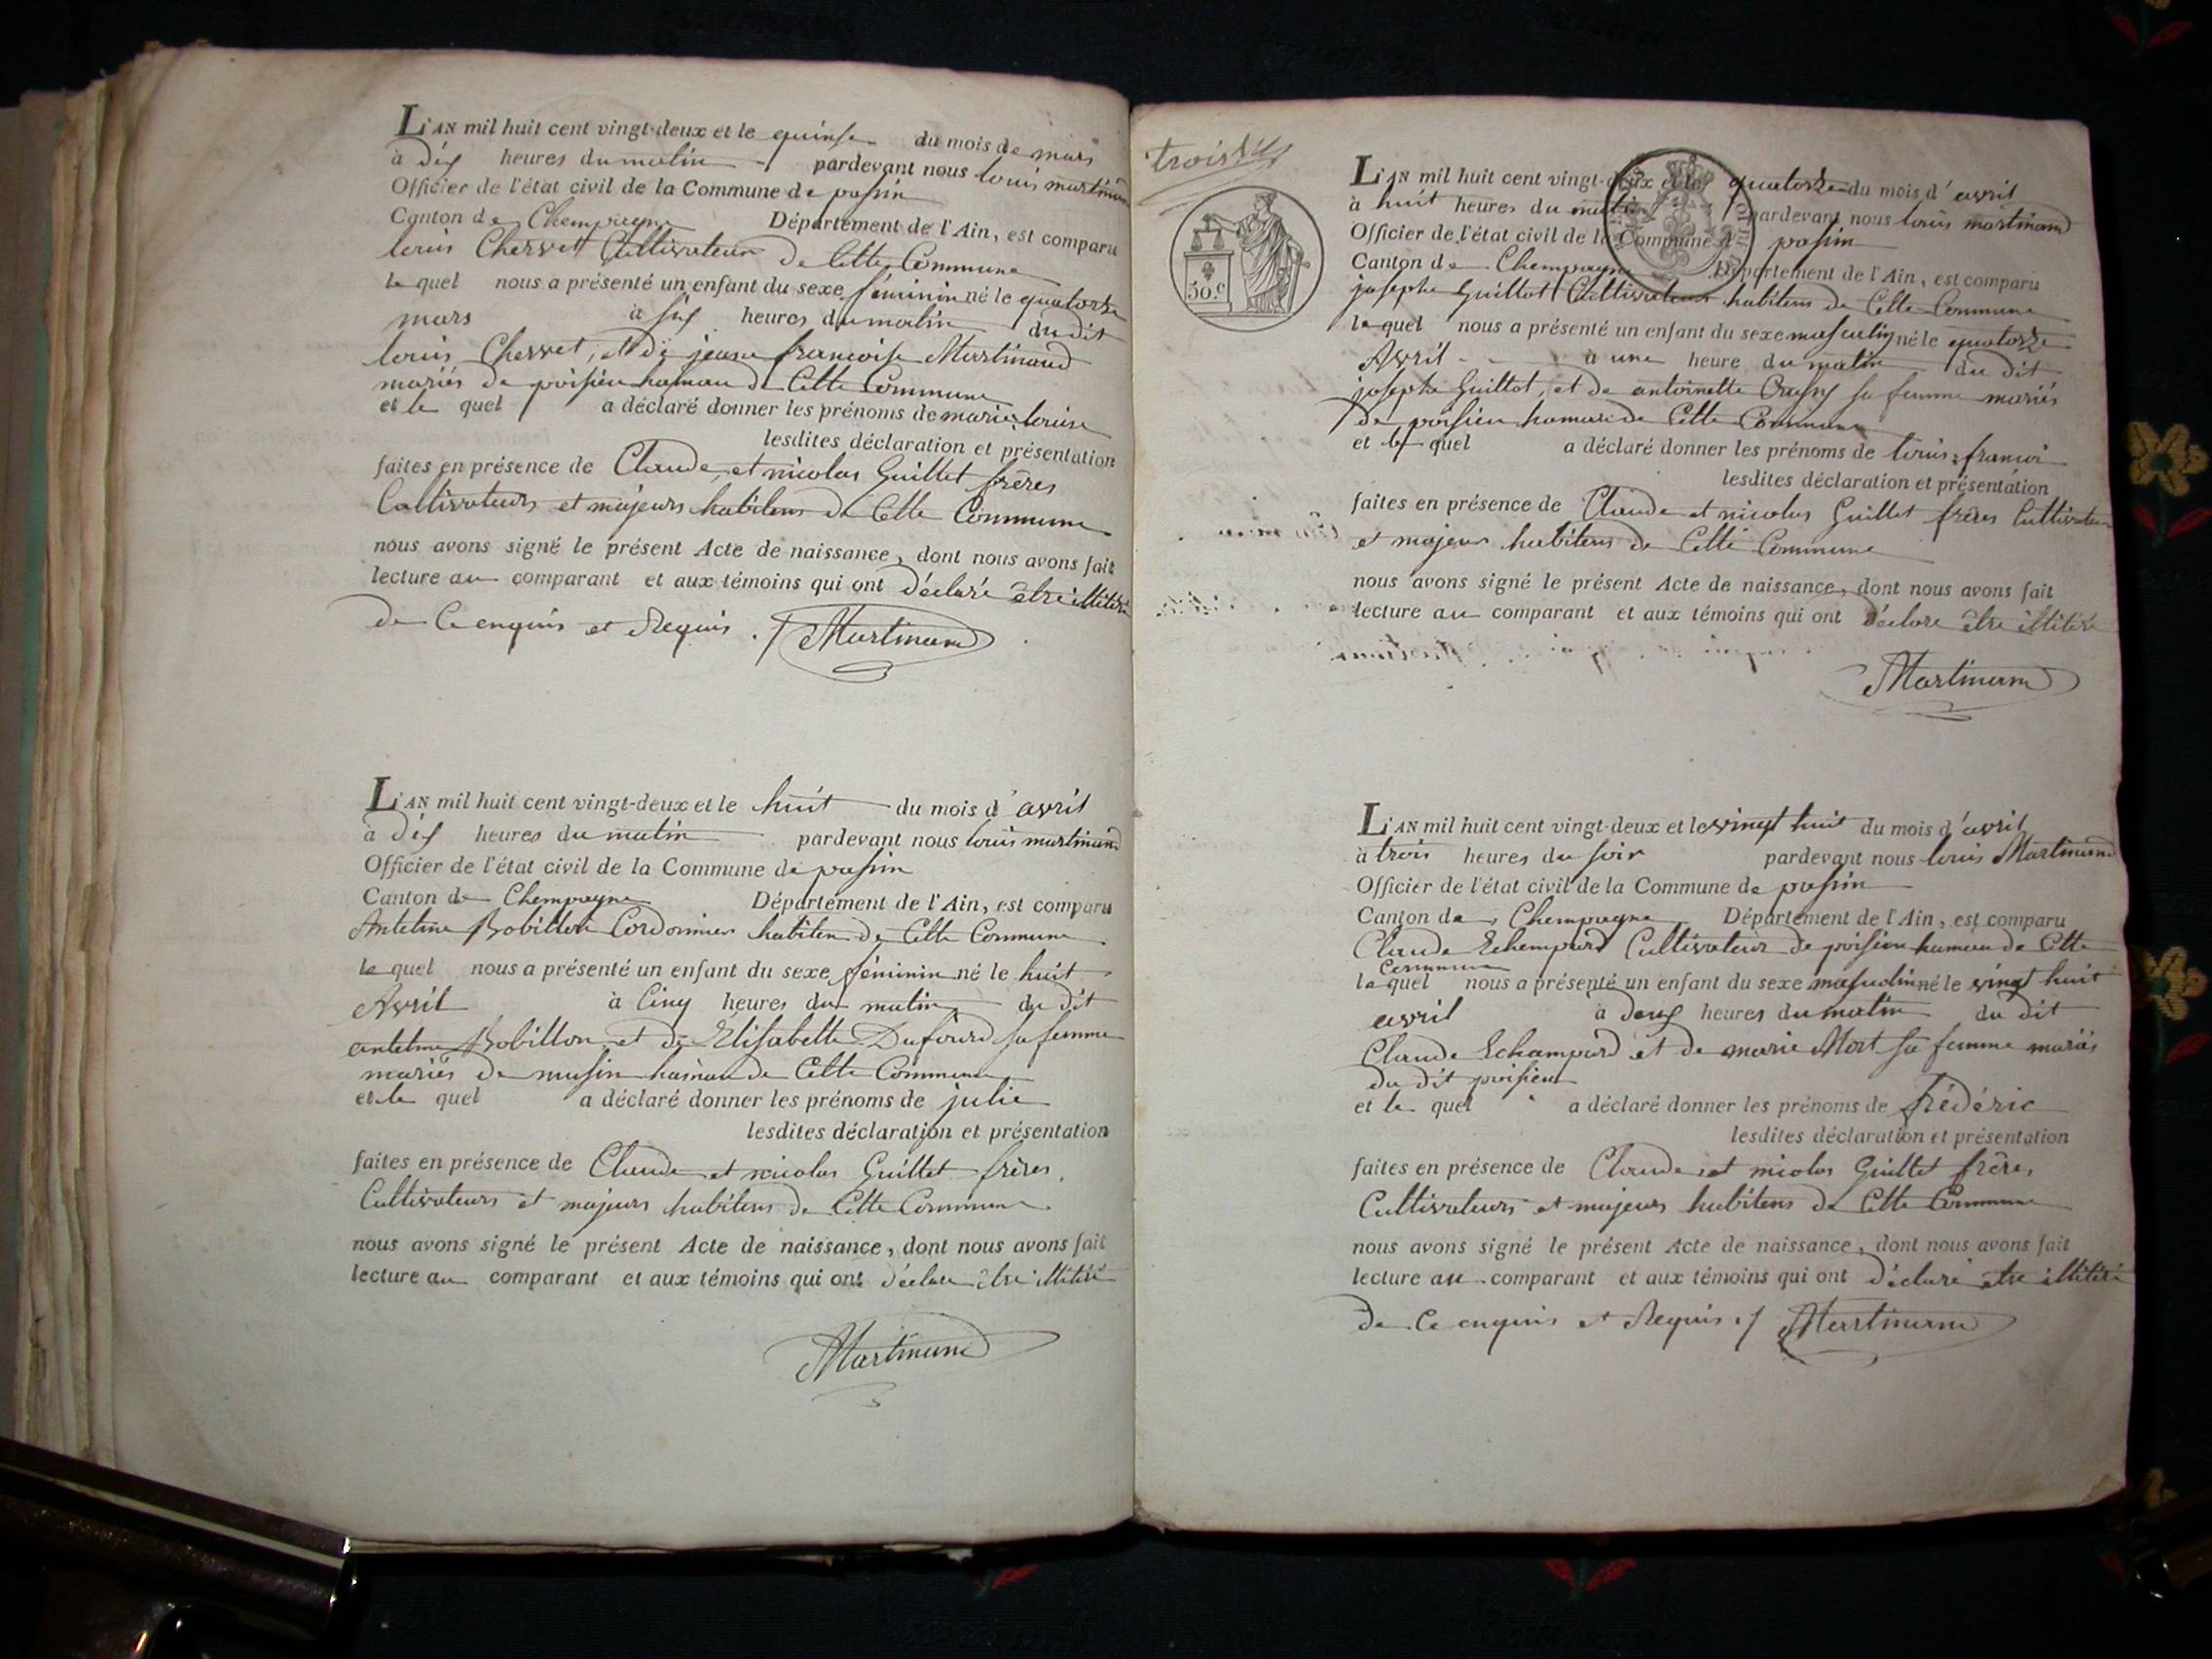 L'AN mil huit cent vingt-deux et le quinse du mois de mars
à dix heures du matin pardevant nous louis martinand
Officier de l'état civil de la Commune de passin
Canton de Champagne Département de l'Ain, est comparu
louis Chervet Cultivateur de Cette Commune
le quel nous a présenté un enfant du sexe féminin né le quatorze
mars à six heures du matin du dit
louis Chervet, et de jeane francoise Martinand
mariés de poisieu hamau de Cette Commune
et le quel a déclaré donner les prénoms de marie louise
lesdites déclaration et présentation
faites en présence de Claude, et nicolas Guillet frères
Cultivateurs et majeurs habitens de Cette Commune
nous avons signé le présent Acte de naissance, dont nous avons fait
lecture au comparant et aux témoins qui ont déclaré être illitéré
de Ce enquis et Requis ./ Martinand
L'AN mil huit cent vingt-deux et le huit du mois d'avril
à dix heures du matin pardevant nous louis martinand
Officier de l'état civil de la Commune de passin
Canton de Champagne Département de l'Ain, est comparu
Antelme Bobillon Cordonnier habiten de Cette Commune
le quel nous a présenté un enfant du sexe féminin né le huit
Avril à Cinq heures du matin du dit
antelme Bobillon et de Elisabette Dufourd sa femme
mariés de musin hamau de Cette Commune
et le quel a déclaré donner les prénoms de julie
lesdites déclaration et présentation
faites en présence de Claude et nicolas Guillet frères
Cultivateurs et majeurs habitens de Cette Commune
nous avons signé le présent Acte de naissance, dont nous avons fait
lecture au comparant et aux témoins qui ont déclaré être illitéré
Martinand
trois
50.c
L'AN mil huit cent vingt-deux et le quatorze du mois d'avril
à huit heures du matin pardevant nous louis martinand
Officier de l'état civil de la Commune d passin
Canton de Champagne Département de l'Ain, est comparu
josephe Guillot Cultivateur habitens de Cette Commune
le quel nous a présenté un enfant du sexe masculin né le quatorze
Avril à une heure du matin du dit
josephe Guillot, et de antoinette sa femme mariés
de poisieu hamau de Cette Commune
et le quel a déclaré donner les prénoms de louis francoi
lesdites déclaration et présentation
faites en présence de Claude et nicolas Guillet frères Cultivateur
et majeur habitens de Cette Commune
nous avons signé le présent Acte de naissance, dont nous avons fait
lecture au comparant et aux témoins qui ont déclaré être illitéré
Martinand
L'AN mil huit cent vingt-deux et le vingt huit du mois d'avril
à trois heures du soir pardevant nous louis Martinand
Officier de l'état civil de la Commune de passin
Canton de Champagne Département de l'Ain, est comparu
Claude Echampard Cultivateur de poisieu hameau de Cette
Commune
le quel nous a présenté un enfant du sexe masculin né le vingt huit
avril à deux heures du matin du dit
Claude Echampard et de marie Mort sa femme mariés
du dit poisieu
et le quel a déclaré donner les prénoms de frédéric
lesdites déclaration et présentation
faites en présence de Claude et nicolas Guillet frères
Cultivateurs et majeurs habitens de Cette Commune
nous avons signé le présent Acte de naissance, dont nous avons fait
lecture au comparant et aux témoins qui ont déclaré être illitéré
de Ce enquis et Requis ./ Martinand